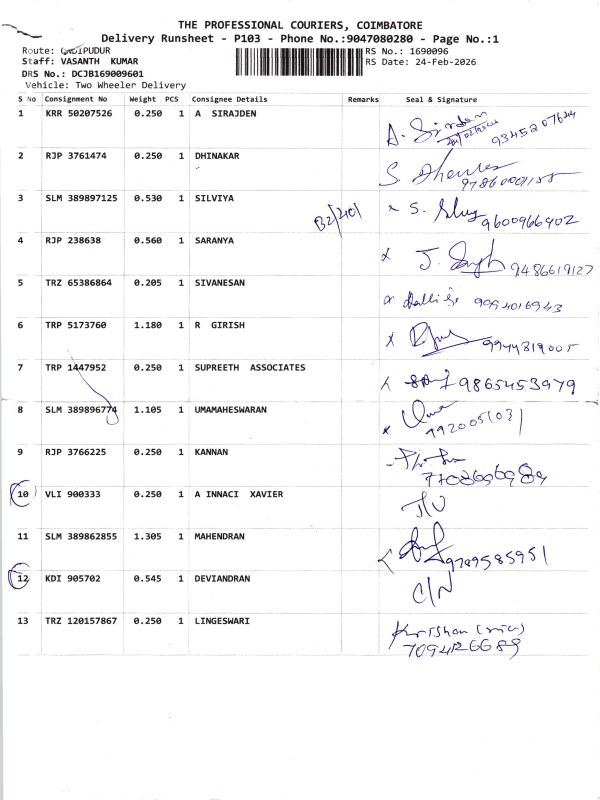 THE PROFESSIONAL COURIERS, COIMBATORE
Delivery Runsheet - P103 - Phone No.:9047080280 - Page No.:1
Route: GADIPUDUR
Staff: VASANTH KUMAR
DRS No.: DCJB169009601
Vehicle: Two Wheeler Delivery
RS No.: 1690096
RS Date: 24-Feb-2026
S No Consignment No Weight PCS Consignee Details Remarks Seal & Signature
1 KRR 50207526 0.250 1 A SIRAJDEN A. 9345207644
2 RJP 3761474 0.250 1 DHINAKAR S
3 SLM 389897125 0.530 1 SILVIYA B2/401 x S. 9600966902
4 RJP 238638 0.560 1 SARANYA x J. 9486619127
5 TRZ 65386864 0.205 1 SIVANESAN 9994016943
6 TRP 5173760 1.180 1 R GIRISH x 9944819005
7 TRP 1447952 0.250 1 SUPREETH ASSOCIATES 9865453979
8 SLM 389896774 1.105 1 UMAMAHESWARAN x Uma 9920051031
9 RJP 3766225 0.250 1 KANNAN
10 VLI 900333 0.250 1 A INNACI XAVIER
11 SLM 389862855 1.305 1 MAHENDRAN 9789585951
12 KDI 905702 0.545 1 DEVIANDRAN C/N
13 TRZ 120157867 0.250 1 LINGESWARI Krishan